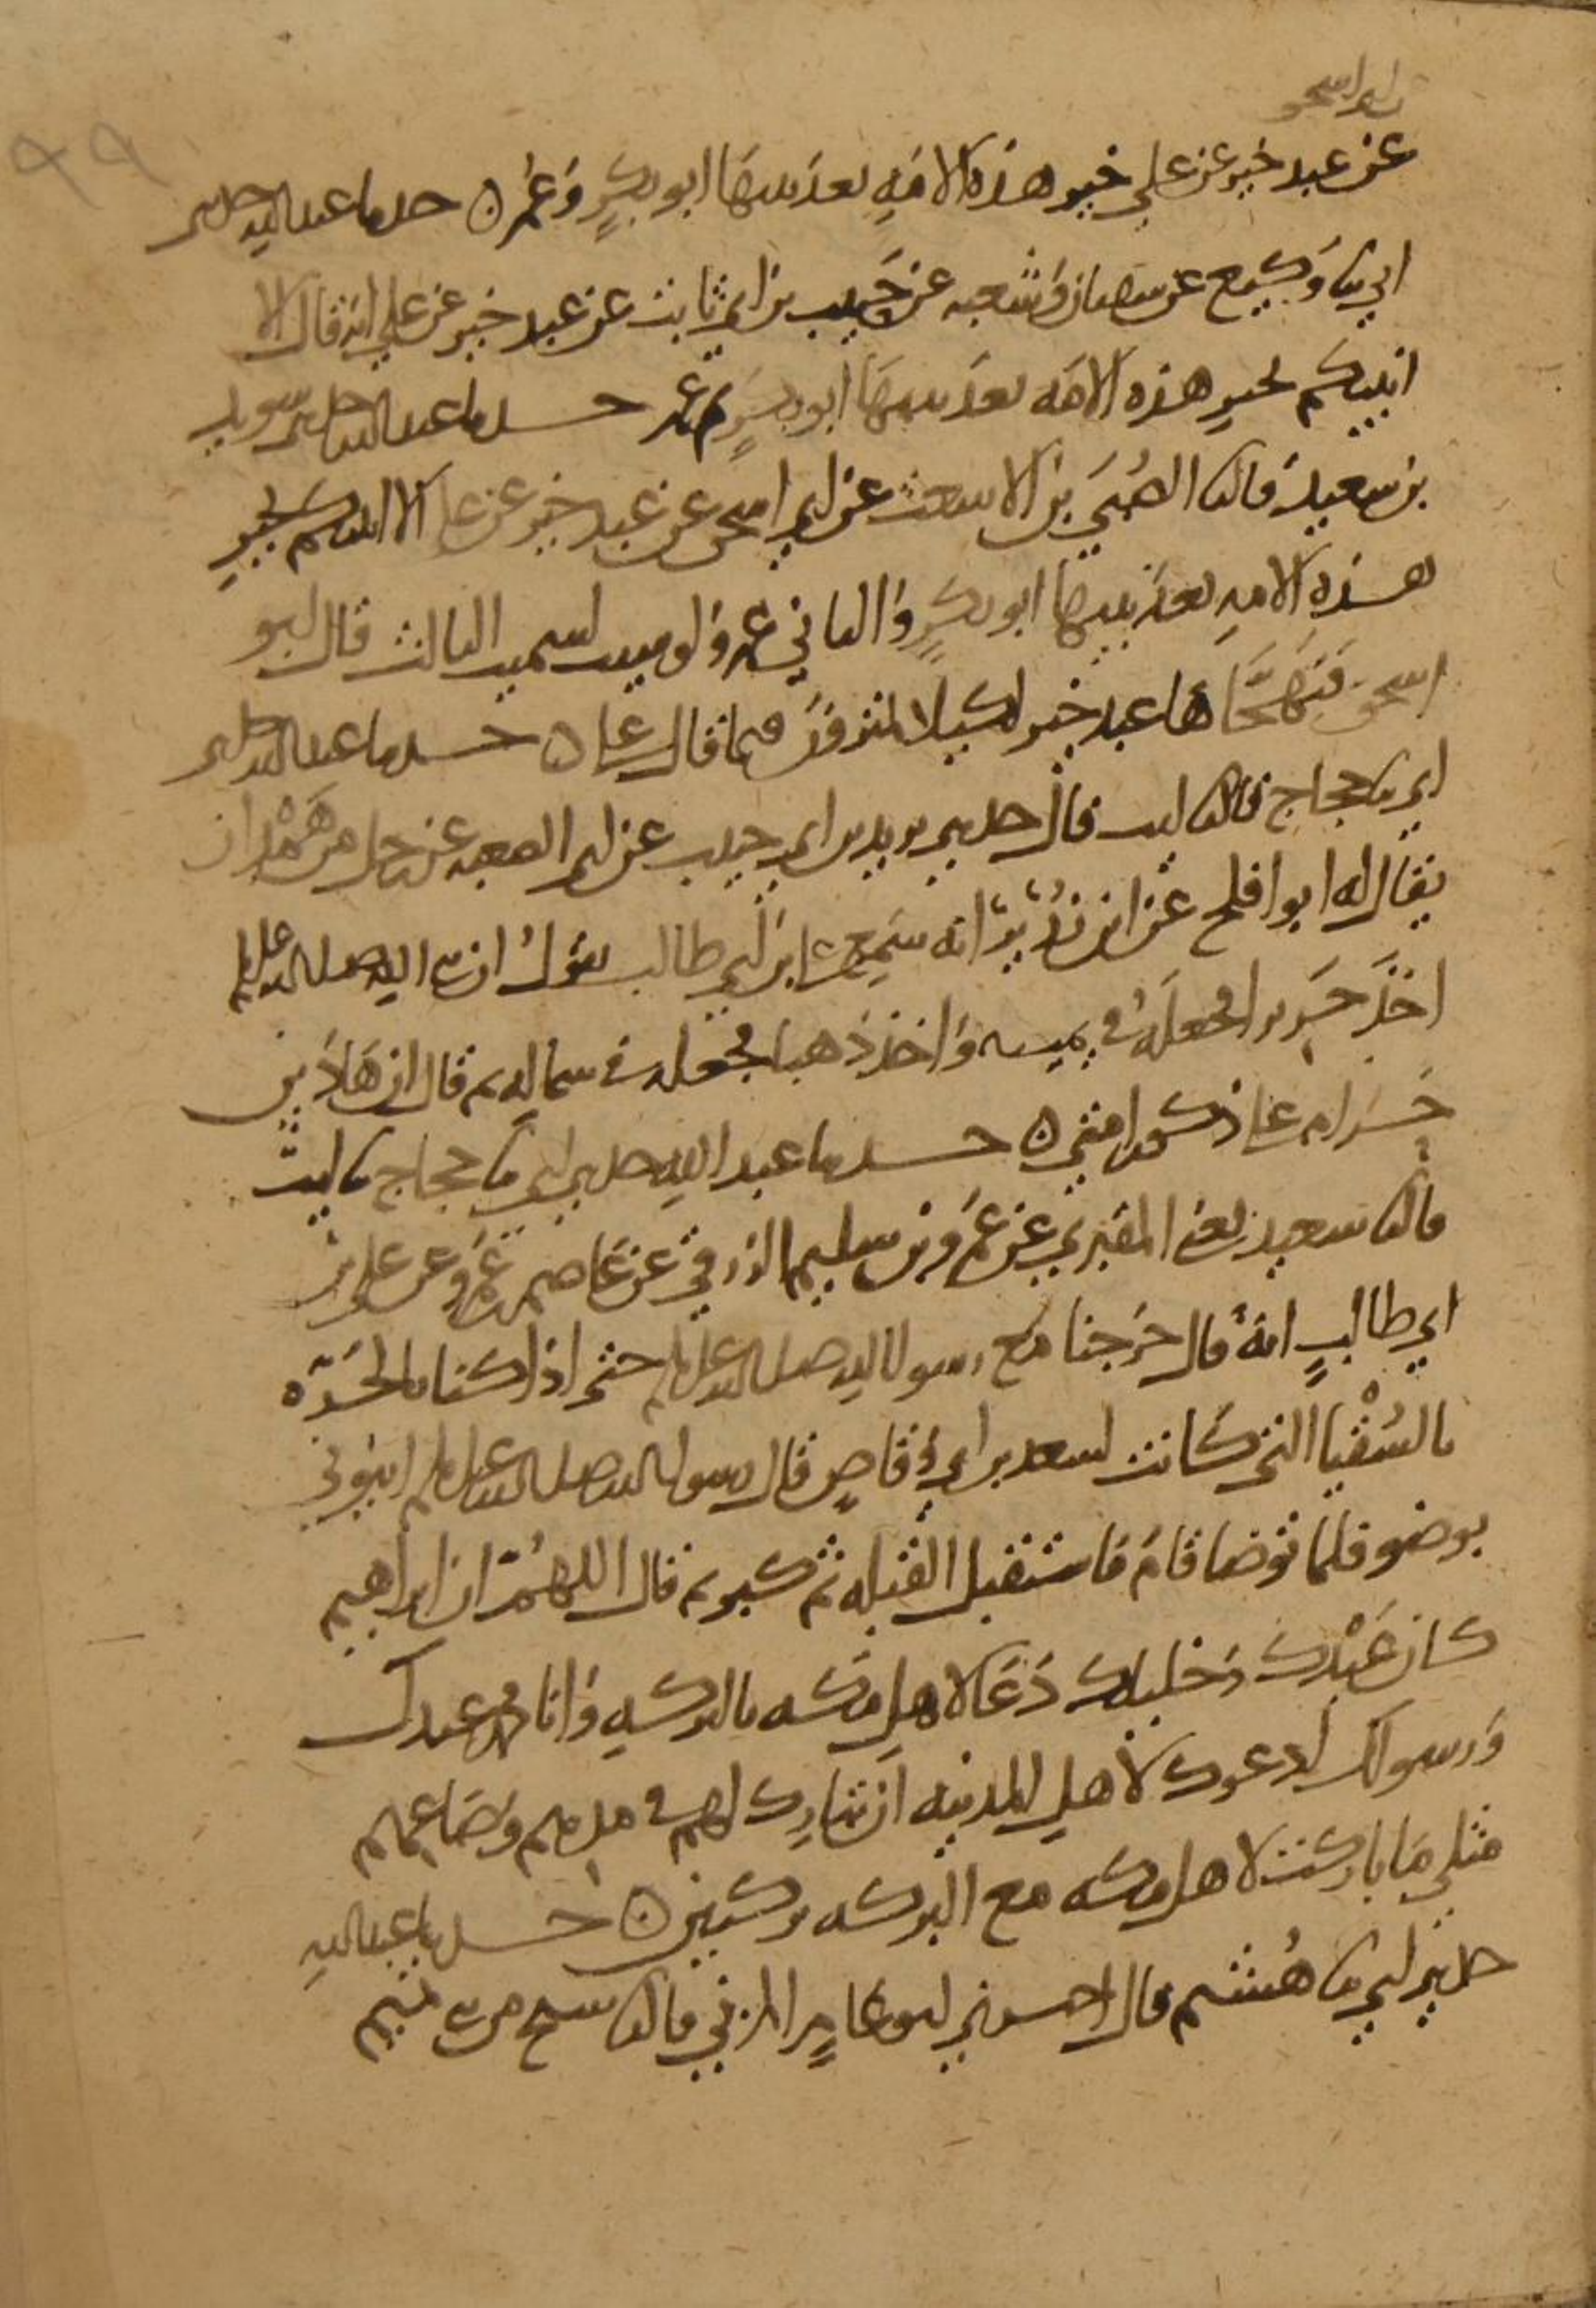 ابو اسحق
99
عن عبد خير عن علي خير هذه الامة بعد نبيها ابو بكرٍ وعمر ه حدثنا عبد الله حدثني
ابي ثنا وكيع عن سفيان وشعبه عن حبيب بن ابي ثابت عن عبد خير عن علي انه قال الا
انبيكم بخير هذه الامه بعد نبيها ابو بكرٍ ثم عمر حدثنا عبد الله حدثني سويد
بن سعيد قال ثنا الصُبَي بن الاشعث عن ابي اسحق عن عبد خير عن علي الا انبيكم بخير
هذه الامه بعد نبيها ابو بكرٍ والثاني عمر ولو شيت لسميت الثالث قال ابو
اسحق فتهجَّاها عبد خير لكيلا تمترون فيما قال علي ه حدثنا عبد الله حدثني
ابي ثنا حجاج قال ثنا ليث قال حدثني يزيد بن ابي حبيب عن ابي الصعبه عن رجل من هَمْدان
يقال له ابو افلح عن ابن زُرَيرٍ انه سمع علي بن ابي طالب يقول ان نبي الله صلى الله عليه وسلم
اخذ حريرا فجعله في يمينه واخذ ذهبا فجعله في شماله ثم قال ان هاذين
حرام على ذكور امتي ه حدثنا عبد الله حدثني ابي ثنا حجاج ثنا ليث
قال ثنا سعيد يعني المقبري عن عمرو بن سليم الزرقي عن عاصم بن عمرو عن علي بن
ابي طالبٍ انه قال خرجنا مع رسول الله صلى الله عليه وسلم حتى اذا كنا بالحَرّه
بالسُقْيا التي كانت لسعد بن ابي وقاصٍ قال رسول الله صلى الله عليه وسلم ايتوني
بوضوء فلما توضا قام فاستقبل القبله ثم كبر ثم قال اللهُمّ ان ابراهيم
كان عَبْدك وخليلك دَعَا لاهل مكه بالبركه وانا محمد عبدك
ورسولك ادعوك لاهل المدينه ان تبارك لهم في مدهم وصاعهم
مثلي ما باركت لاهل مكه مع البركه بركتين ه حدثنا عبد الله
حدثني ابي ثنا هُشيم قال اخبرني ابو عامرٍ المزني قال ثنا شيخ من بني تميم